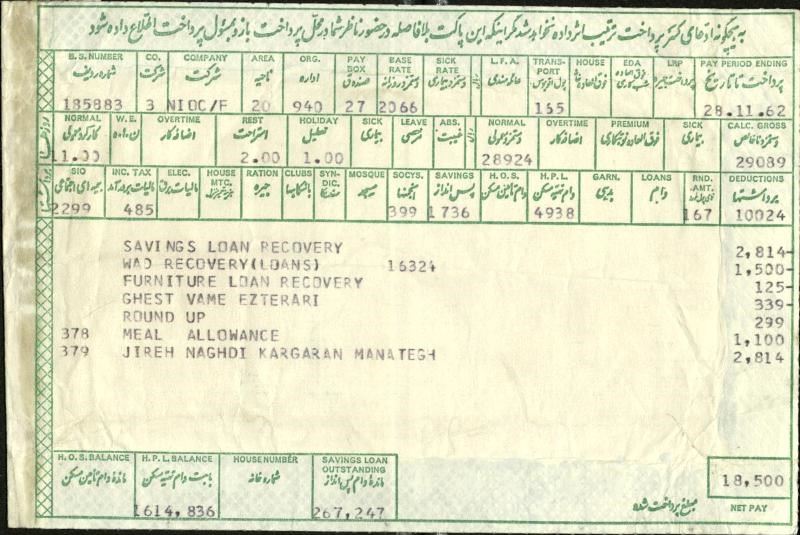 به هیچگونه ادعای کسر پرداخت ترتیب اثر داده نخواهد شد مگر اینکه این پاکت بلافاصله در حضور ناظر شما در محل پرداخت باز و بمسئول پرداخت اطلاع داده شود
B.S. NUMBER CO. COMPANY AREA ORG. PAY BOX BASE RATE SICK RATE L.F.A. TRANSPORT HOUSE EDA LRP PAY PERIOD ENDING
شماره ردیف شرکت شرکت ناحیه اداره صندوق پرداخت تا تاریخ
185883 3 NIOC/F 20 940 27 2066 165 28.11.62
NORMAL W.E. OVERTIME REST HOLIDAY SICK LEAVE ABS. NORMAL OVERTIME PREMIUM SICK CALC. GROSS
کارکرد معمولی اضافه کار استراحت تعطیل بیماری مرخصی غیبت دستمزد معمولی اضافه کار بیماری
11.00 2.00 1.00 28924 29089
SIO INC. TAX ELEC. HOUSE MTC. RATION CLUBS SYNDIC. MOSQUE SOCYS. SAVINGS H.O.S. H.P.L. GARN. LOANS RND. AMT. DEDUCTIONS
بیمه های اجتماعی مالیات بر درآمد مالیات برق جیره باشگاهها مسجد انجمنها پس انداز وام تأمین مسکن وام تهیه مسکن بدهی وام برداشتها
2299 485 399 1736 4938 167 10024
SAVINGS LOAN RECOVERY 2,814-
WAD RECOVERY(LOANS) 16324 1,500-
FURNITURE LOAN RECOVERY 125-
GHEST VAME EZTERARI 339-
ROUND UP 299
378 MEAL ALLOWANCE 1,100
379 JIREH NAGHDI KARGARAN MANATEGH 2,814
H.O.S. BALANCE H.P.L. BALANCE HOUSE NUMBER SAVINGS LOAN OUTSTANDING
مانده وام تأمین مسکن بابت وام تهیه مسکن شماره خانه مانده وام پس انداز
1614,836 267,247
18,500
مبلغ پرداخت شده NET PAY